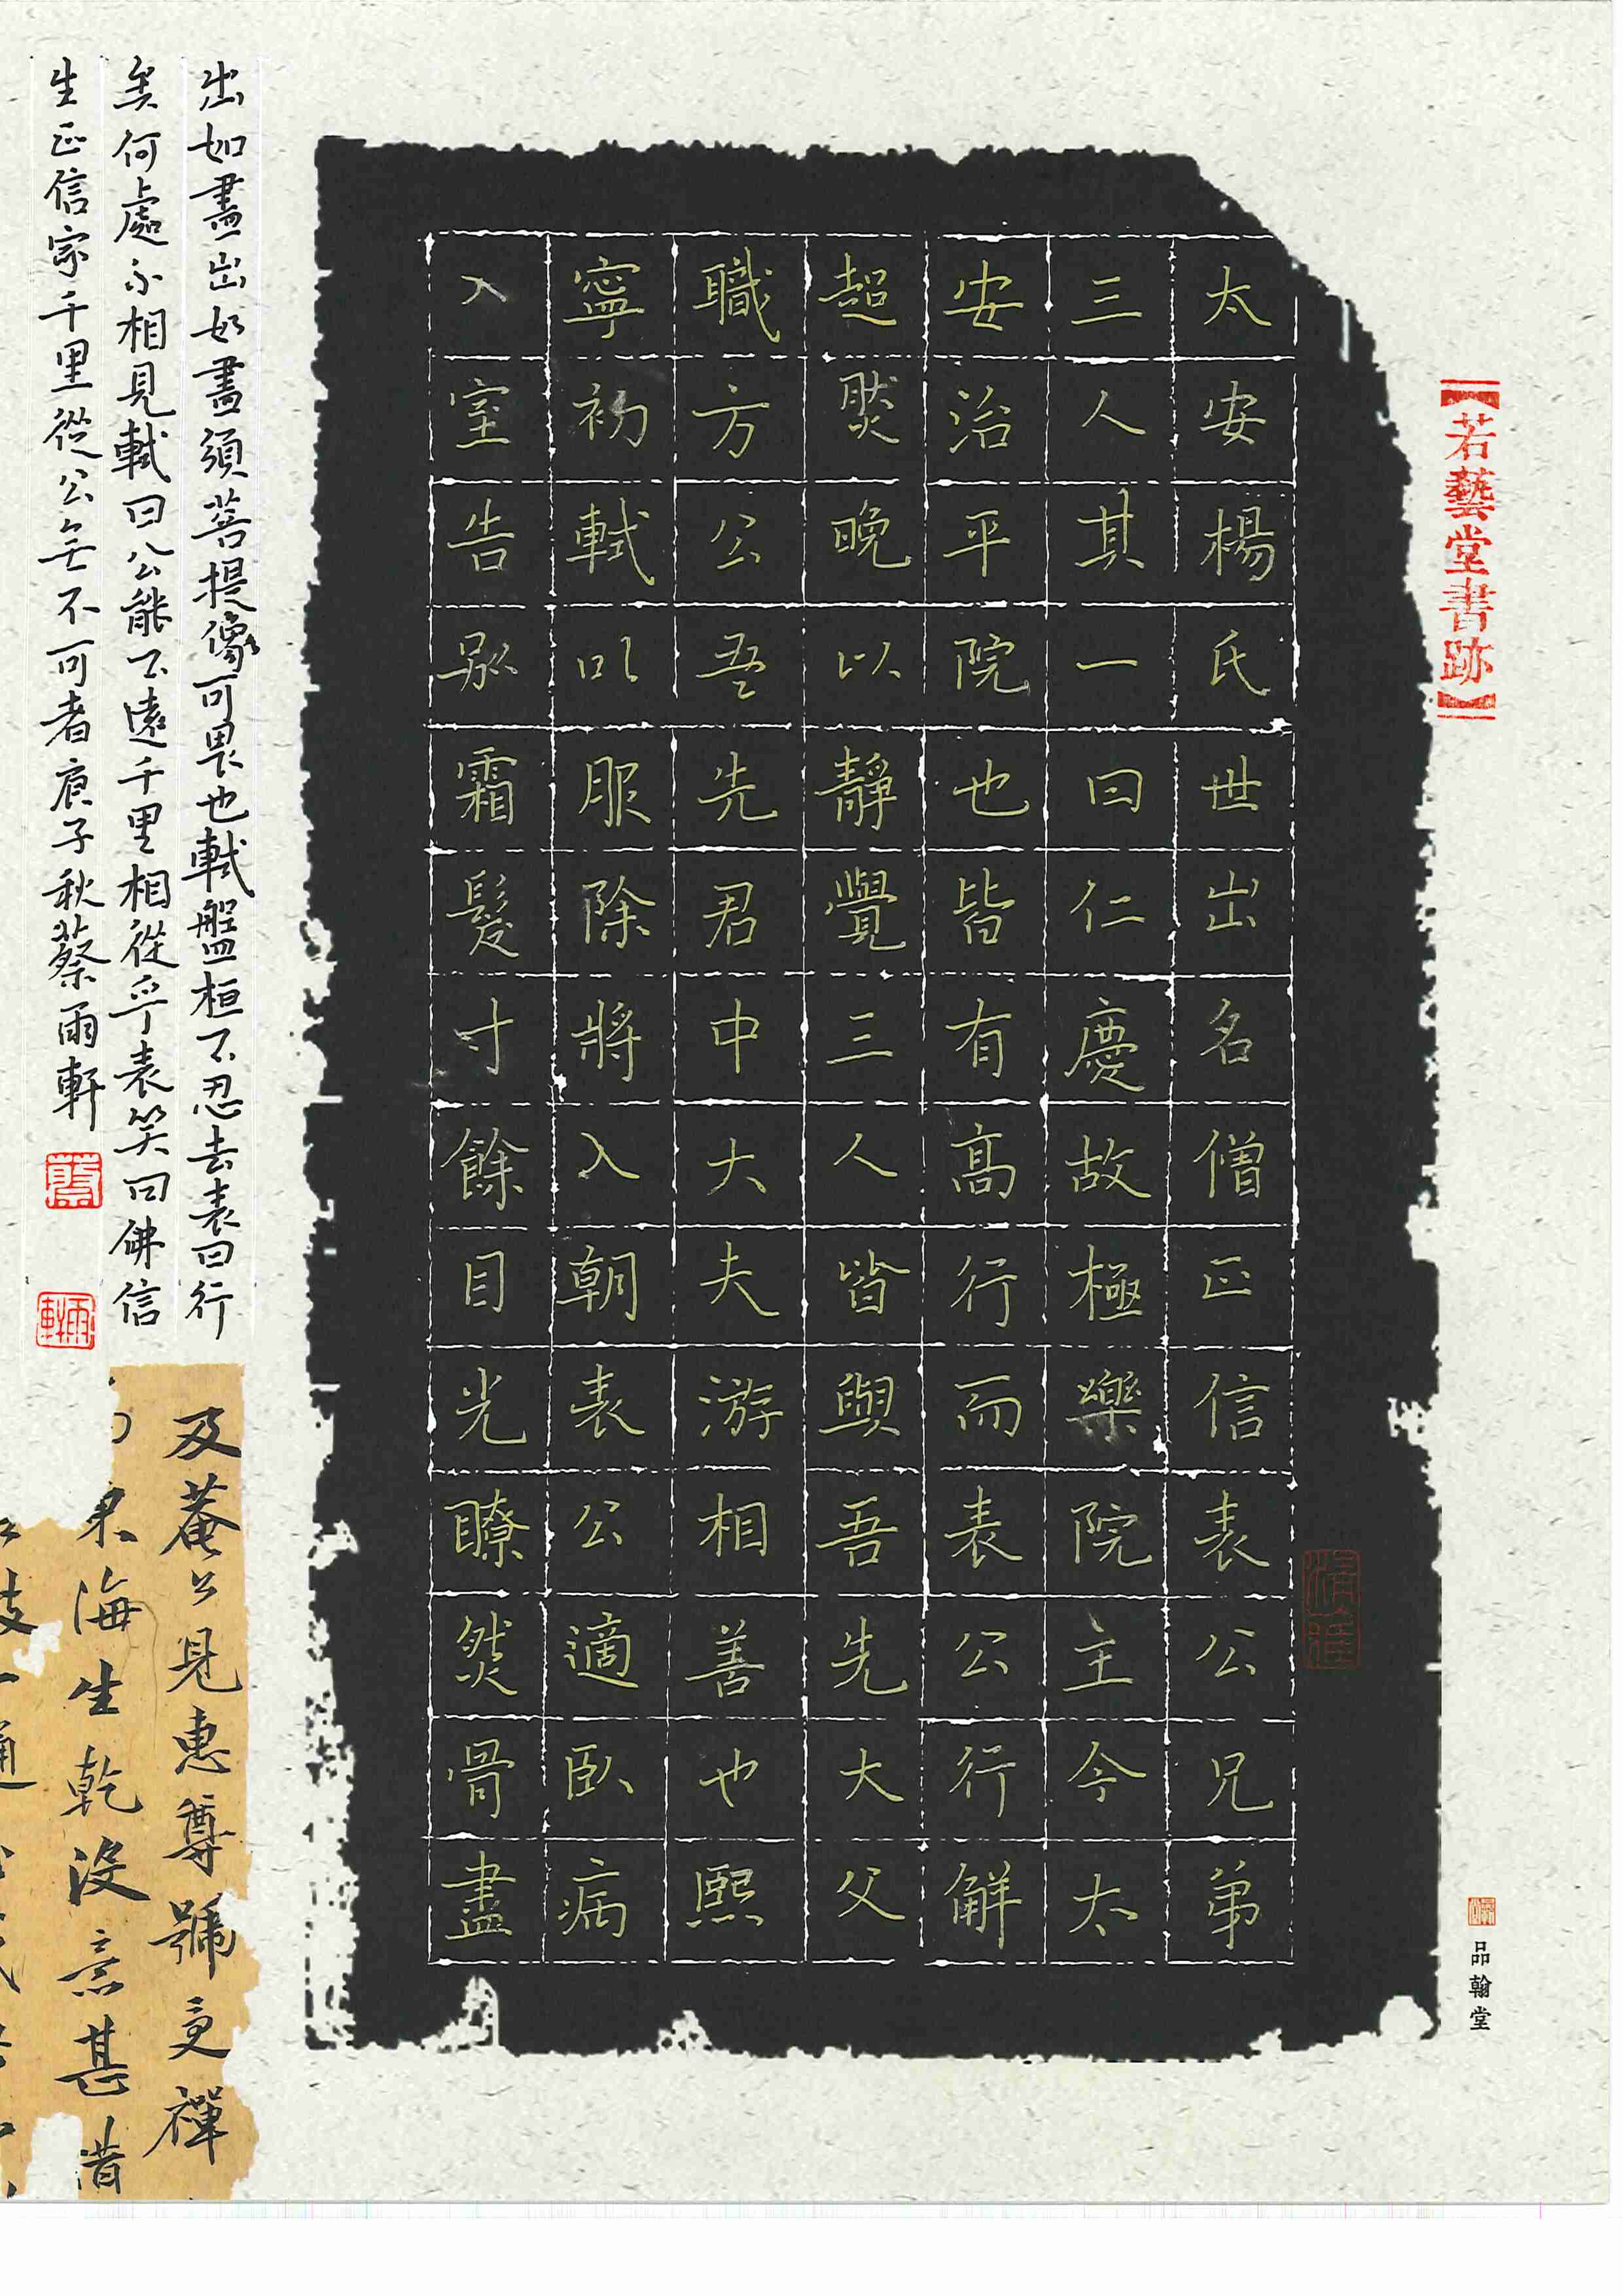 【若藝堂書跡】
品翰堂
太安楊氏世出名僧正信表公兄弟
三人其一曰仁慶故極樂院主今太
安治平院也皆有高行而表公行解
超然晚以靜覺三人皆與吾先大父
職方公吾先君中大夫游相善也熙
寧初軾以服除將入朝表公適臥病
入室告別霜髮寸餘目光瞭然骨盡
出如盡出如畫須菩提像可畏也軾盤桓不忍去表曰行
矣何處不相見軾曰公能不遠千里相從乎表笑曰佛信
生正信家千里從公無不可者庚子秋蔡雨軒
及菴公見惠尊號更禪
海生乾沒意甚惜